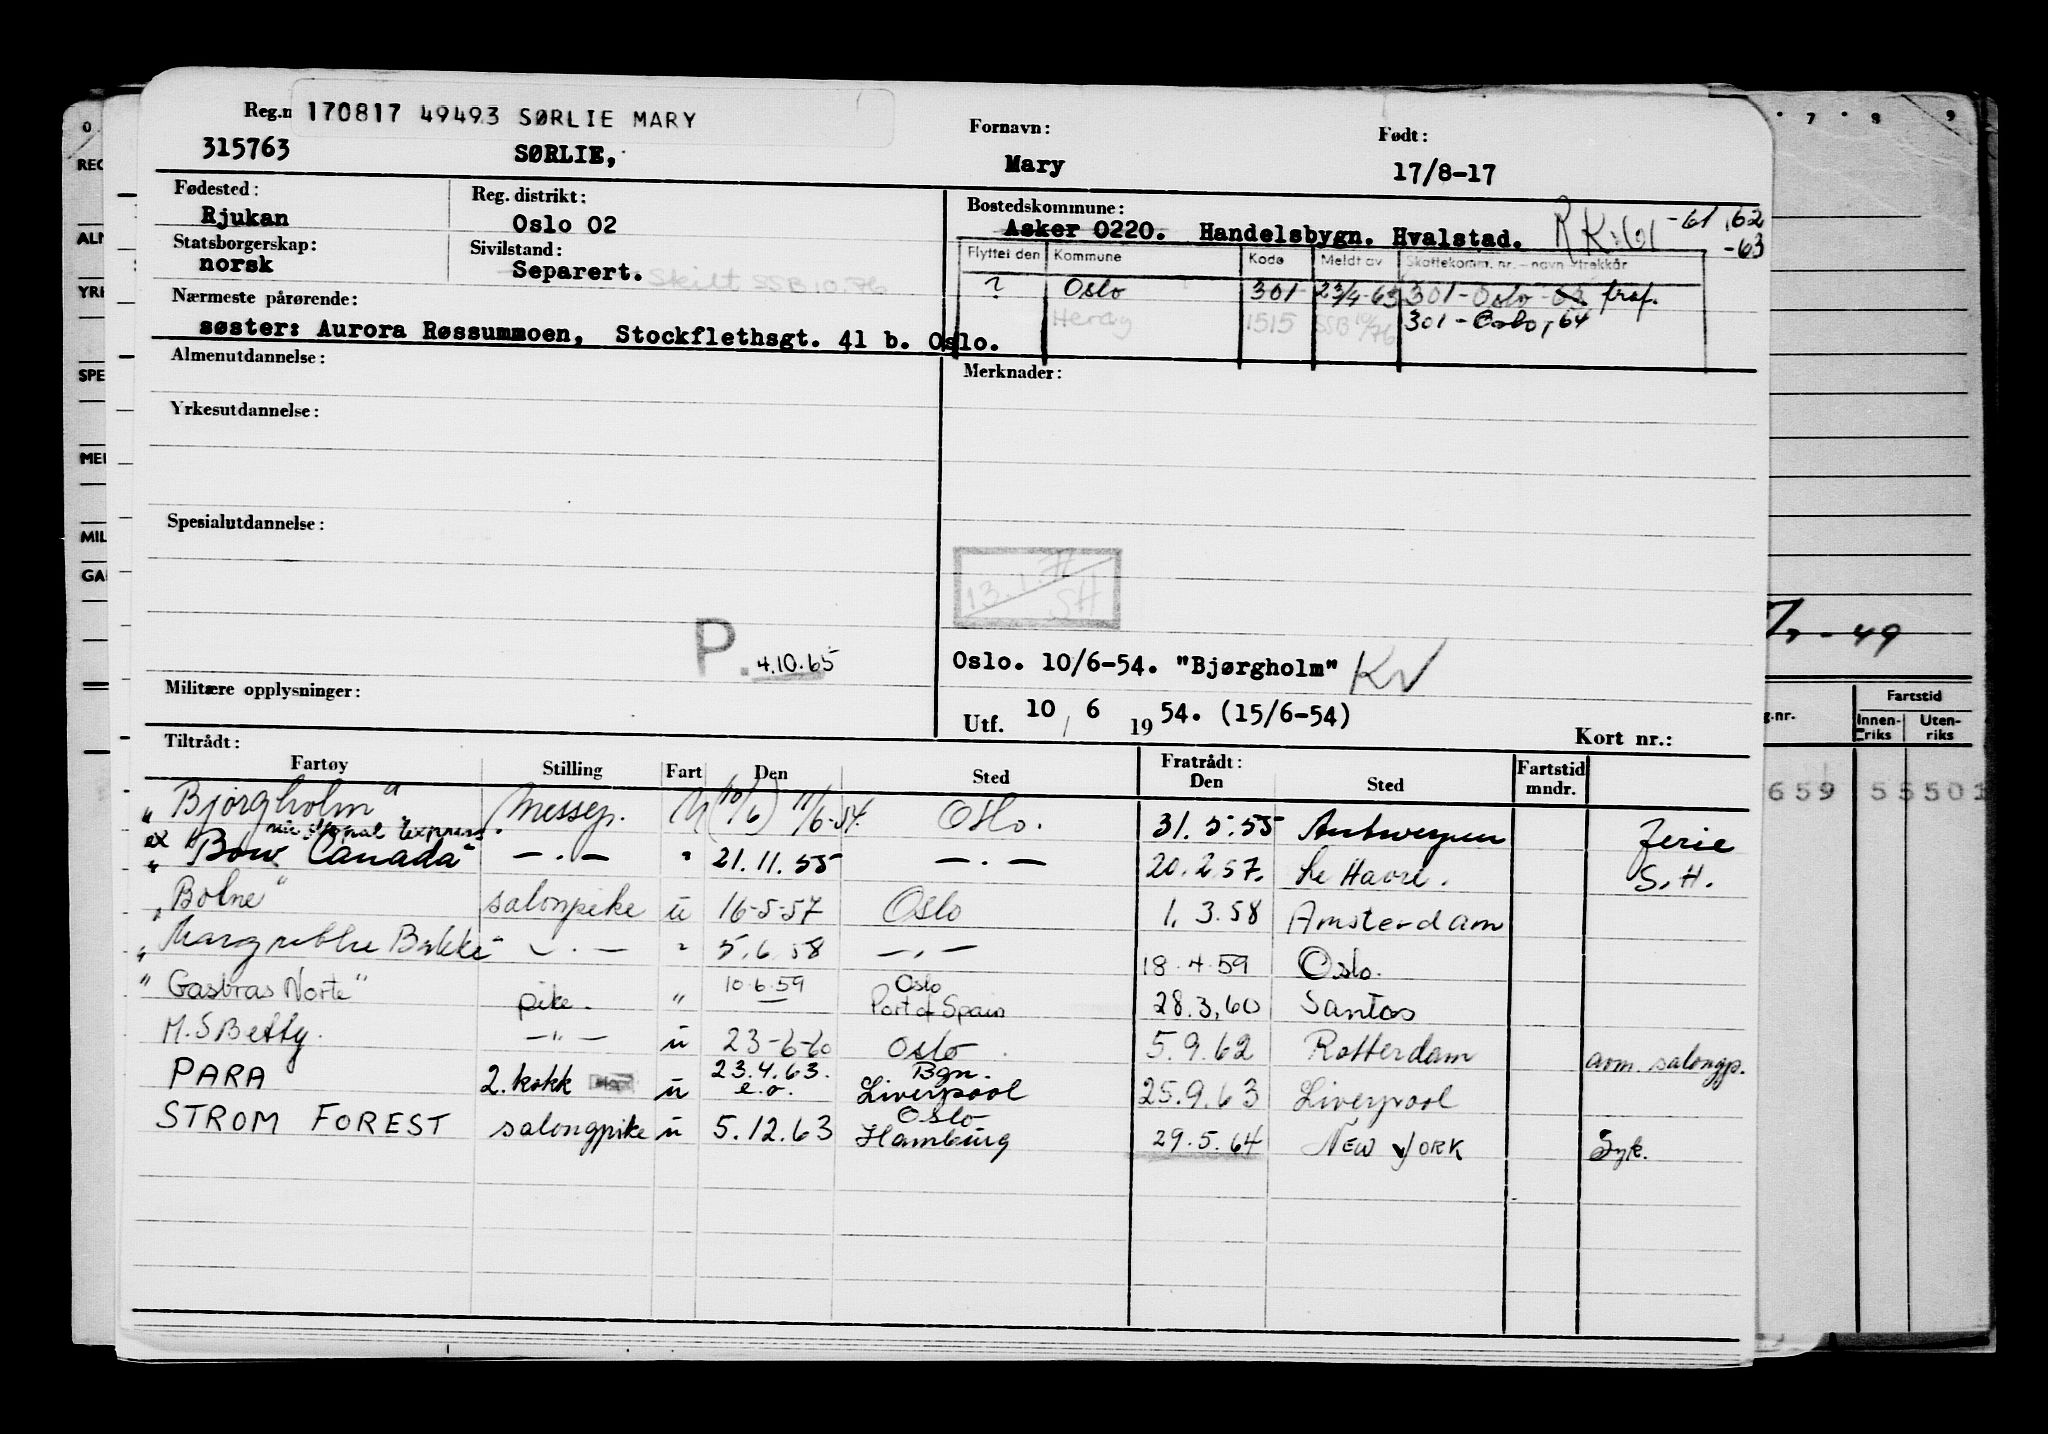 Reg.n 170817 49493 SØRLIE MARY Fornavn: Født:
315763 SØRLIE, Mary 17/8-17
Fødested: Reg. distrikt: Bostedskommune:
Rjukan Oslo 02 Asker 0220. Handelsbygn. Hvalstad. -61, 62
-63
Statsborgerskap: Sivilstand: Flyttet den Kommune Kode Meldt av Skattekomm. nr. - navn - trekkår
norsk Separert. Skilt SSB 10.76 ? Oslo 301 23/4-63 301-Oslo
Nærmeste pårørende: 1515 301-Oslo, -64
søster: Aurora Røssummoen, Stockflethsgt. 41 b. Oslo.
Almenutdannelse: Merknader:
Yrkesutdannelse:
Spesialutdannelse:
SH
P. 4.10.65
Oslo. 10/6-54. "Bjørgholm" KV
Militære opplysninger:
Utf. 10 / 6 1954. (15/6-54)
Kort nr.:
Tiltrådt: Fratrådt:
Fartøy Stilling Fart Den Sted Den Sted Fartstid mndr.
"Bjørgholm" Messep. U (10/6) 11/6-54. Oslo. 31.5.55 Antwerpen Ferie
ex
"Bow Canada" -.- " 21.11.55 -.- 20.2.57. Le Havre. S.H.
"Bolne" salonpike u 16-5-57 Oslo 1.3.58 Amsterdam
"Margrethe Bakke" -.- " 5.6.58 -.- 18.4.59 Oslo.
"Gasbras Norte" pike. " 10.6.59 Oslo Port of Spain 28.3.60 Santos
M.S Betty. -"- u 23-6-60 Oslo 5.9.62 Rotterdam avm. salongp.
PARA 2. kokk u 23.4.63. e.o. Bgn. Liverpool 25.9.63 Liverpool
STROM FOREST salongpike u 5.12.63 Oslo Hamburg 29.5.64 NEW YORK Syk.
0
REG
ALM
YRK
SPE
MEI
MIL
GA
7 8 9
-49
g.nr. Fartstid
Innenriks Utenriks
659 55501